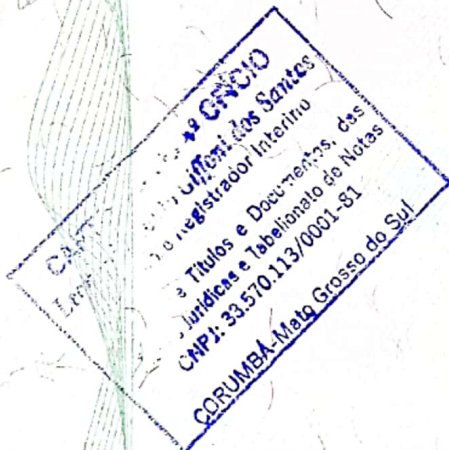 4º OFÍCIO
Giffoni dos Santos
e Registrador Interino
e Títulos e Documentos, das
Jurídicas e Tabelionato de Notas
CNPJ: 33.570.113/0001-81
CORUMBÁ-Mato Grosso do Sul